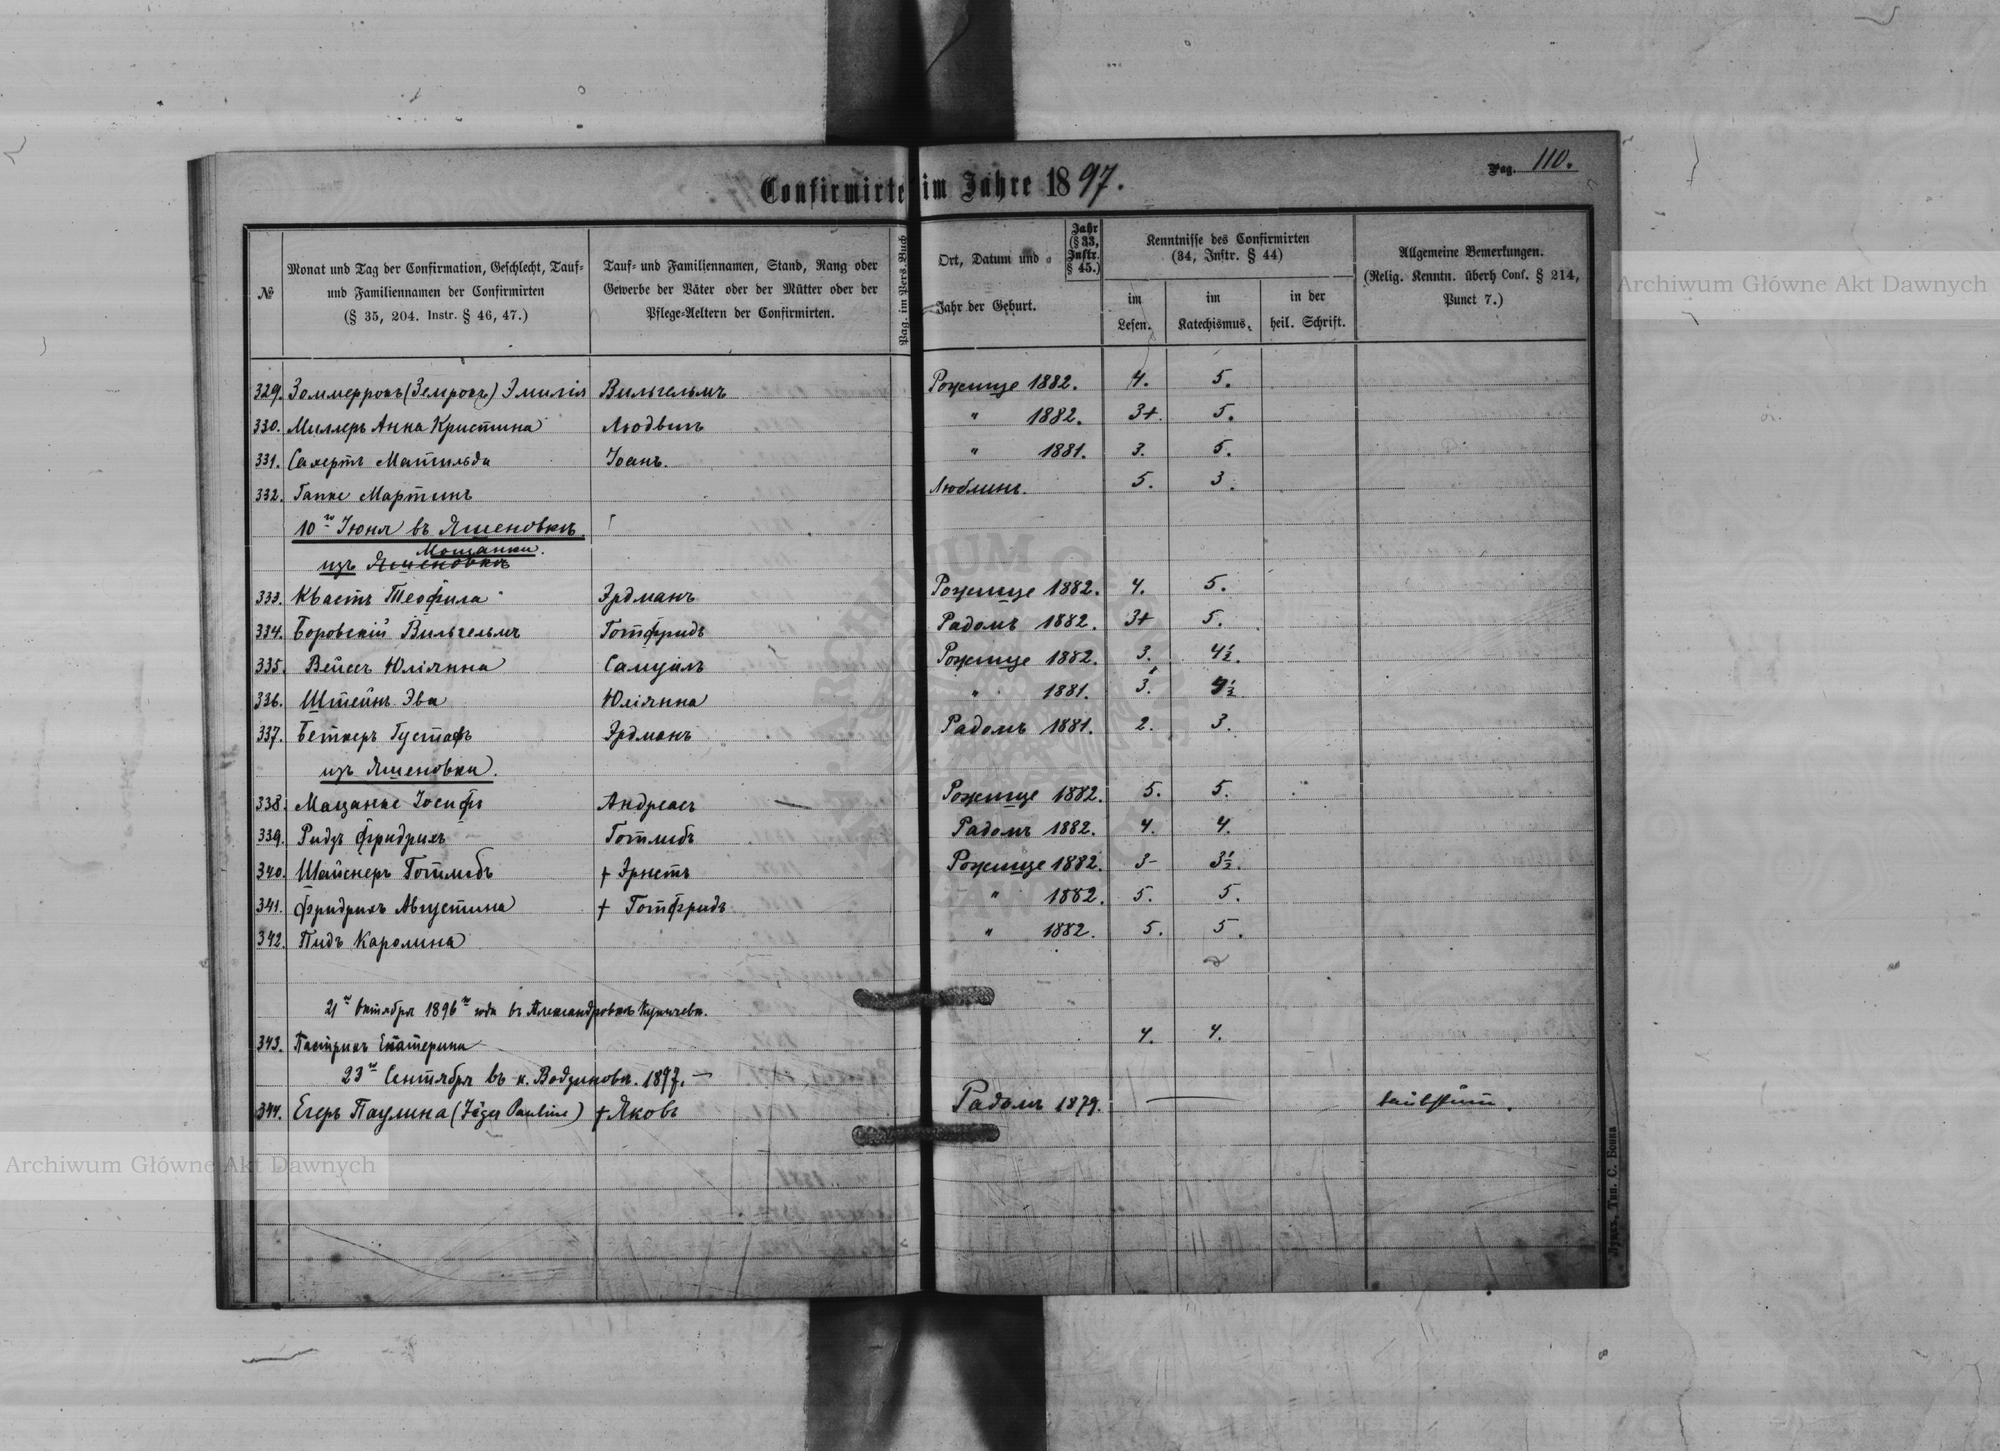 Confirmirte im Jahre 1897.
Pag. 110.
№
Monat und Tag der Confirmation, Geschlecht, Tauf-
und Familiennamen der Confirmirten
(§ 35, 204. Instr. § 46, 47.)
Tauf- und Familiennamen, Stand, Rang oder
Gewerbe der Väter oder der Mütter oder der
Pflege-Aeltern der Confirmirten.
Pag. im Pers. Buch
Ort, Datum und
Jahr der Geburt.
Jahr
(§ 33,
Instr.
§ 45.)
Kenntnisse des Confirmirten
(34, Instr. § 44)
im
Lesen.
im
Katechismus.
in der
heil. Schrift.
Allgemeine Bemerkungen.
(Relig. Kenntn. überh Conf. § 214,
Punct 7.)
329. Зоммеррокъ (Земрокъ) Эмилія Вильгельмъ Рожище 1882. 4. 5.
330. Миллеръ Анна Кристина Людвигъ " 1882. 3+. 5.
331. Сахертъ Матильда Іоанъ. " 1881. 3. 5.
332. Гапке Мартинъ Люблинъ. 5. 3.
10го Іюня въ Яшеновкѣ.
Мощанки.
изъ Яшеновки
333. Квастъ Теофила Эрдманъ Рожище 1882. 4. 5.
334. Боровскій Вильгельмъ Готфридъ Радомъ 1882. 3+ 5.
335. Вейсъ Юліянна Самуилъ Рожище 1882. 3. 4½.
336. Штейнъ Эва Юліянна " 1881. 3. 4½
337. Беткеръ Густафъ Эрдманъ Радомъ 1881. 2. 3.
изъ Яшеновки.
338. Мацанке Іосифъ Андреасъ Рожище 1882. 5. 5.
339. Ридъ Фридрихъ Готлибъ Радомъ 1882. 4. 4.
340. Шайснеръ Готлибъ † Эрнстъ Рожище 1882. 3- 3½.
341. Фридрихъ Августина † Готфридъ " 1882. 5. 5.
342. Пидъ Каролина " 1882. 5. 5.
21го Октября 1896го года въ Александровкѣ
343. Пастрикъ Екатерина 4. 4.
23го Сентября въ к. 1897. —
344. Егеръ Паулина (Jäger Pauline) † Яковъ Радомъ 1879. — taubstum.
Луцкъ, Тип. С. Бонка
Archiwum Główne Akt Dawnych
Archiwum Główne Akt Dawnych